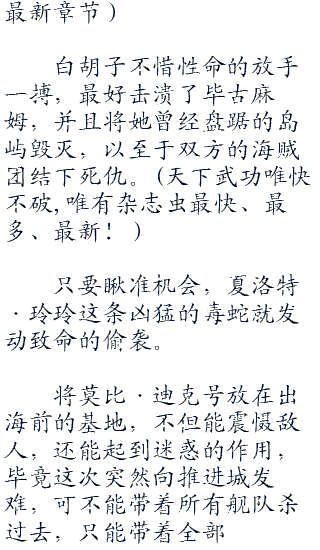 最新章节)
白胡子不惜性命的放手
一搏，最好击溃了毕古麻
姆，并且将她曾经盘踞的岛
屿毁灭，以至于双方的海贼
团结下死仇。(天下武功唯快
不破,唯有杂志虫最快、最
多、最新！)
只要瞅准机会，夏洛特
·玲玲这条凶猛的毒蛇就发
动致命的偷袭。
将莫比·迪克号放在出
海前的基地，不但能震慑敌
人，还能起到迷惑的作用，
毕竟这次突然向推进城发
难，可不能带着所有舰队杀
过去，只能带着全部